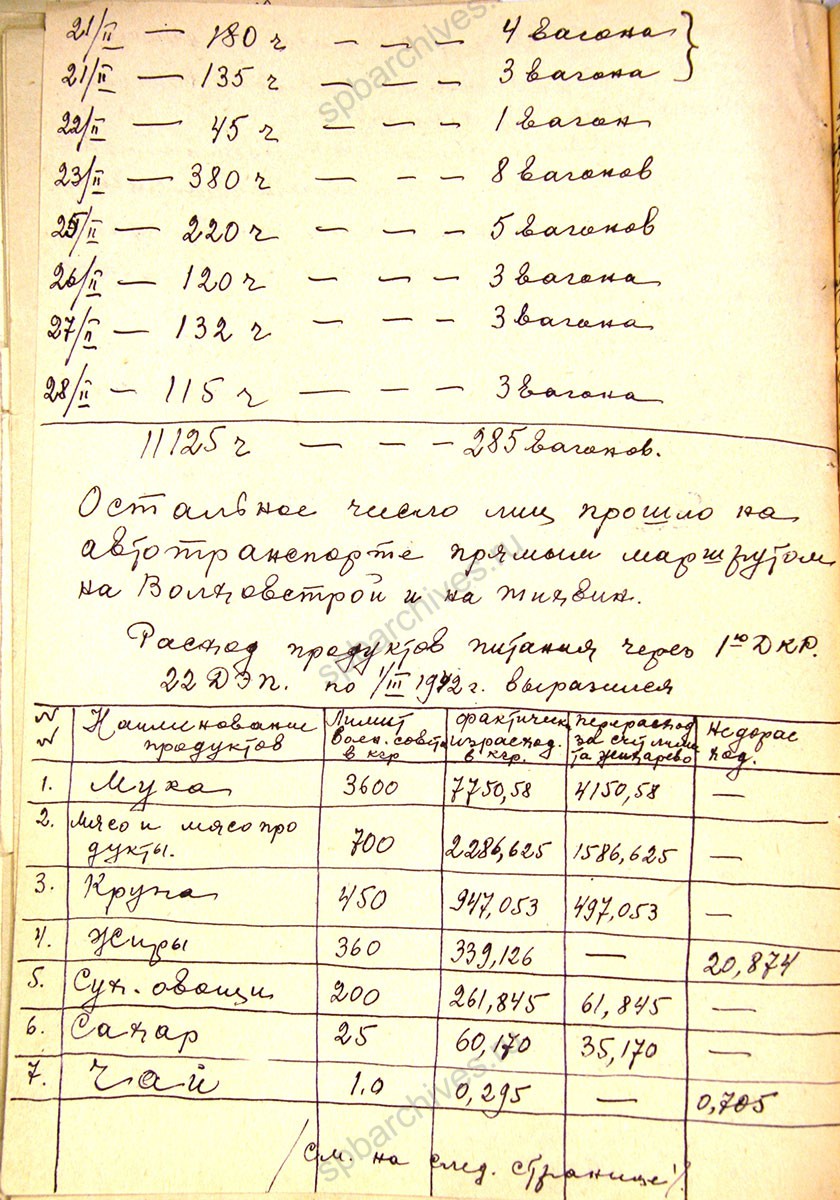 21/II — 180 ч — — — 4 вагона
21/II — 135 ч — — — 3 вагона
22/II — 45 ч — — — 1 вагон
23/II — 380 ч — — — 8 вагонов
25/II — 220 ч — — — 5 вагонов
26/II — 120 ч — — — 3 вагона
27/II — 132 ч — — — 3 вагона
28/II — 115 ч — — — 3 вагона
11125 ч — — — 285 вагонов.
Остальное число лиц прошло на
автотранспорте прямым маршрутом
на Волховстрой и на Тихвин.
Расход продуктов питания через 1ю ДКР.
22 ДЭП. по 1/III 1942 г. выразился
NN Наименование продуктов Лимит Воен. совета в кгр фактическ израсход. в кгр. перерасход за счет лимита Жихарево Недорасход.
1. Мука 3600 7750,58 4150,58 —
2. Мясо и мясопродукты. 700 2286,625 1586,625 —
3. Крупа 450 947,053 497,053 —
4. Жиры 360 339,126 — 20,874
5. Сух. овощи 200 261,845 61,845 —
6. Сахар 25 60,170 35,170 —
7. Чай 1.0 0,295 — 0,705
/См. на след. странице/
spbarchives.ru
spbarchives.ru
spbarchives.ru